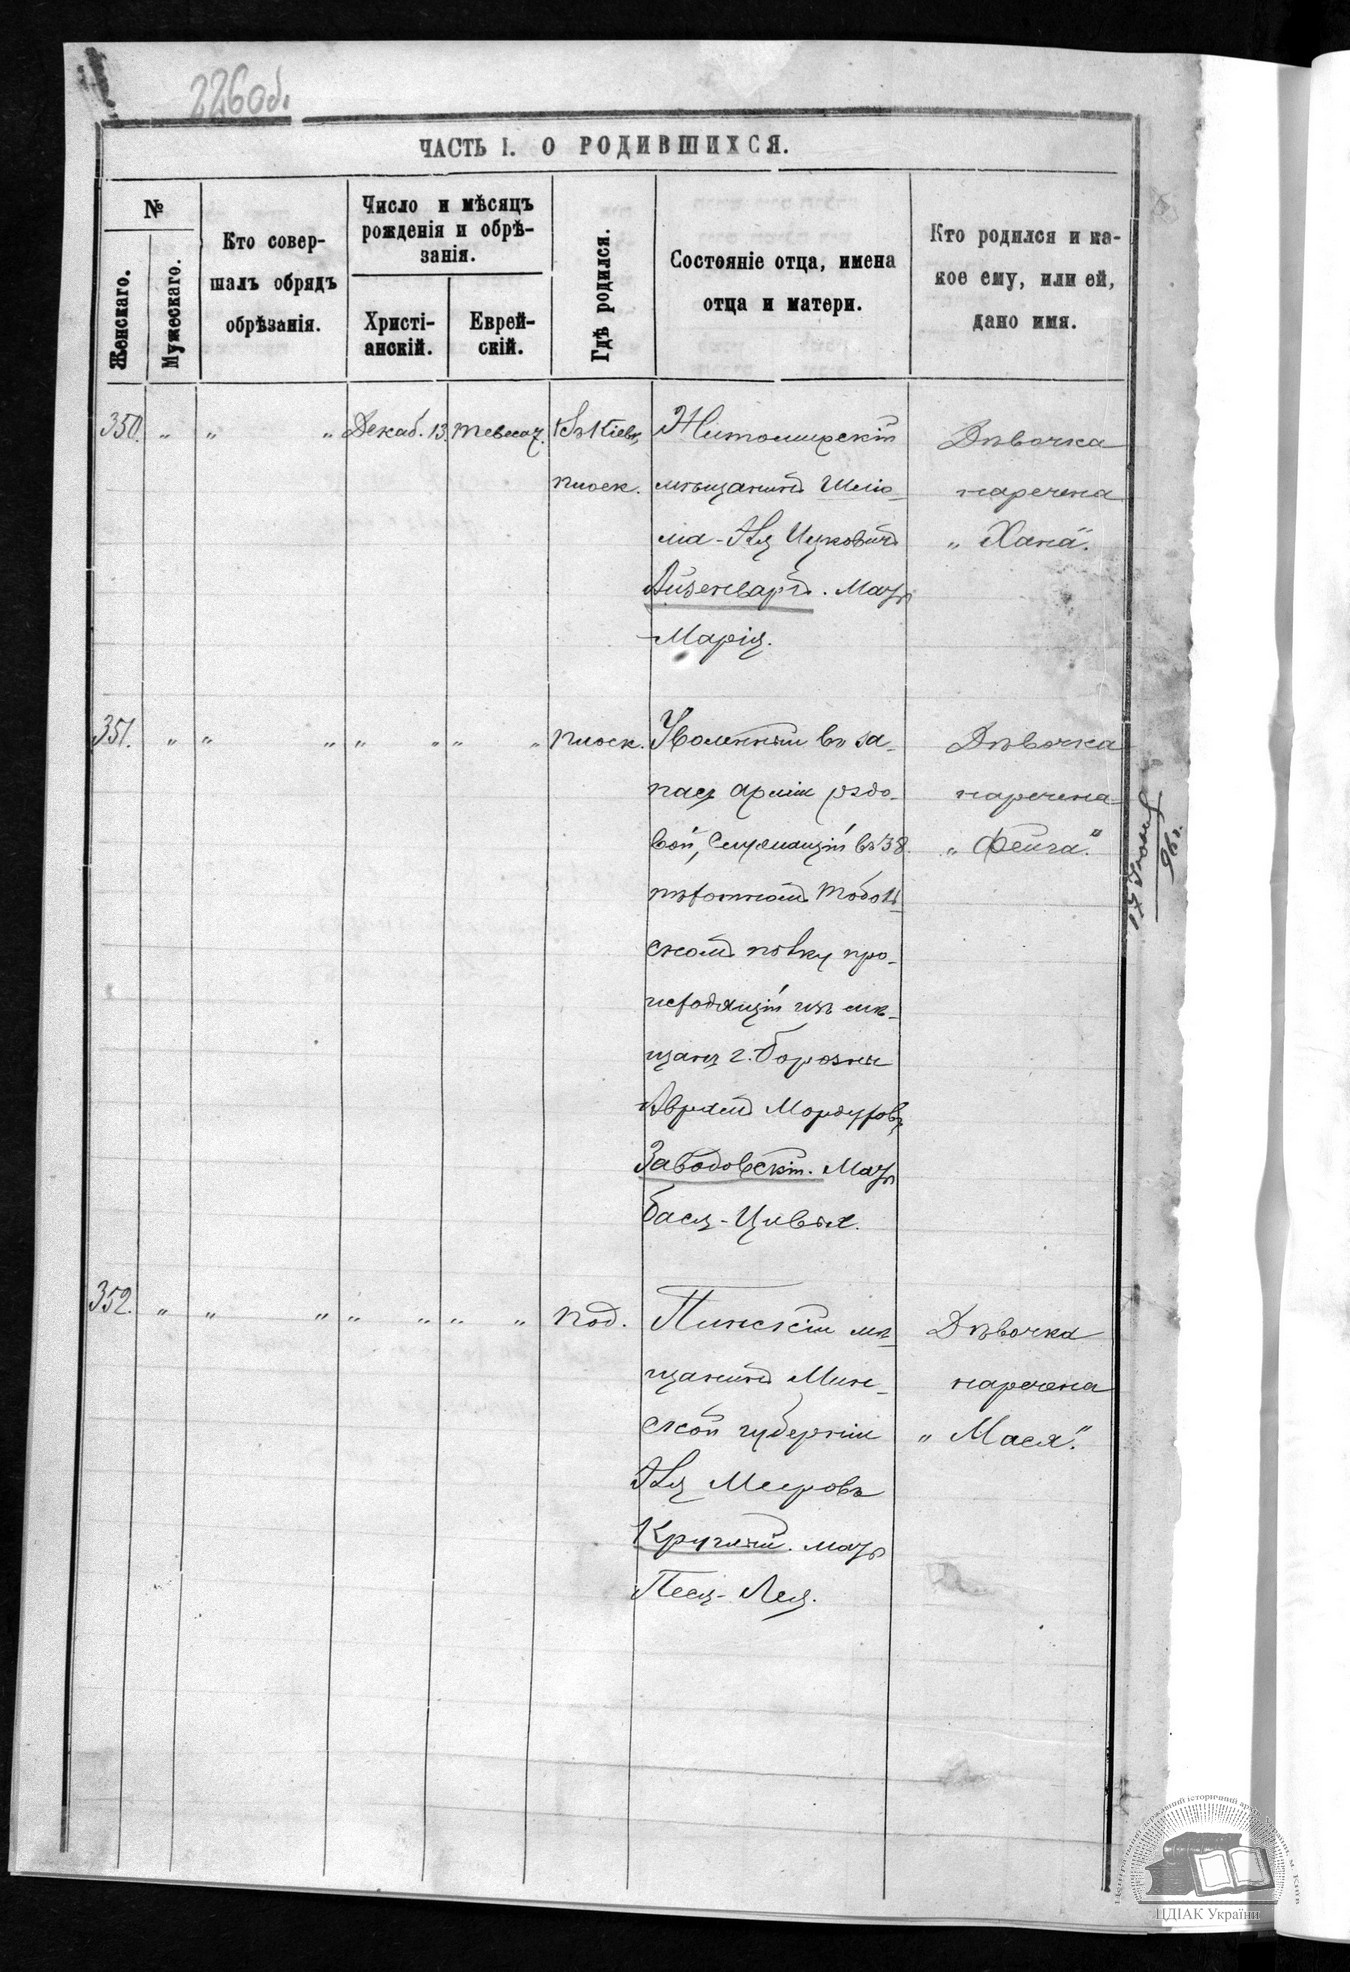 226об.
ЧАСТЬ I. О РОДИВШИХСЯ.
№
Женскаго.
Мужескаго.
Кто совер-
шалъ обрядъ
обрѣзанія.
Число и мѣсяцъ
рожденія и обрѣ-
занія.
Христі-
анскій.
Еврей-
скій.
Гдѣ родился.
Состояніе отца, имена
отца и матери.
Кто родился и ка-
кое ему, или ей,
дано имя.
350. „ „ „ Декаб. 13. Тевеса 7. Въ Кіевѣ,
плоск.
Житомирскій
мѣщанинъ Шліо-
ма-Ицковичъ
Айзенвартъ. Мать
Марія.
Дѣвочка
наречена
„Хана“.
351. „ „ „ „ „ „ „ плоск.
Уволенный въ за-
пасъ арміи рядо-
вой, служащій въ 38
пѣхотномъ Тоболь-
скомъ полку про-
исходящій изъ мѣ-
щанъ г. Борозны
Аврамъ Мордуховъ
Заводовскій. Мать
Бася-Цивья.
Дѣвочка
наречена
„Фейга“.
96 г.
352. „ „ „ „ „ „ „ под.
Пинскій мѣ-
щанинъ Мин-
ской губерніи
Меировъ
Круглый. мать
Песя-Лея.
Дѣвочка
наречена
„Мася“.
ЦДІАК України